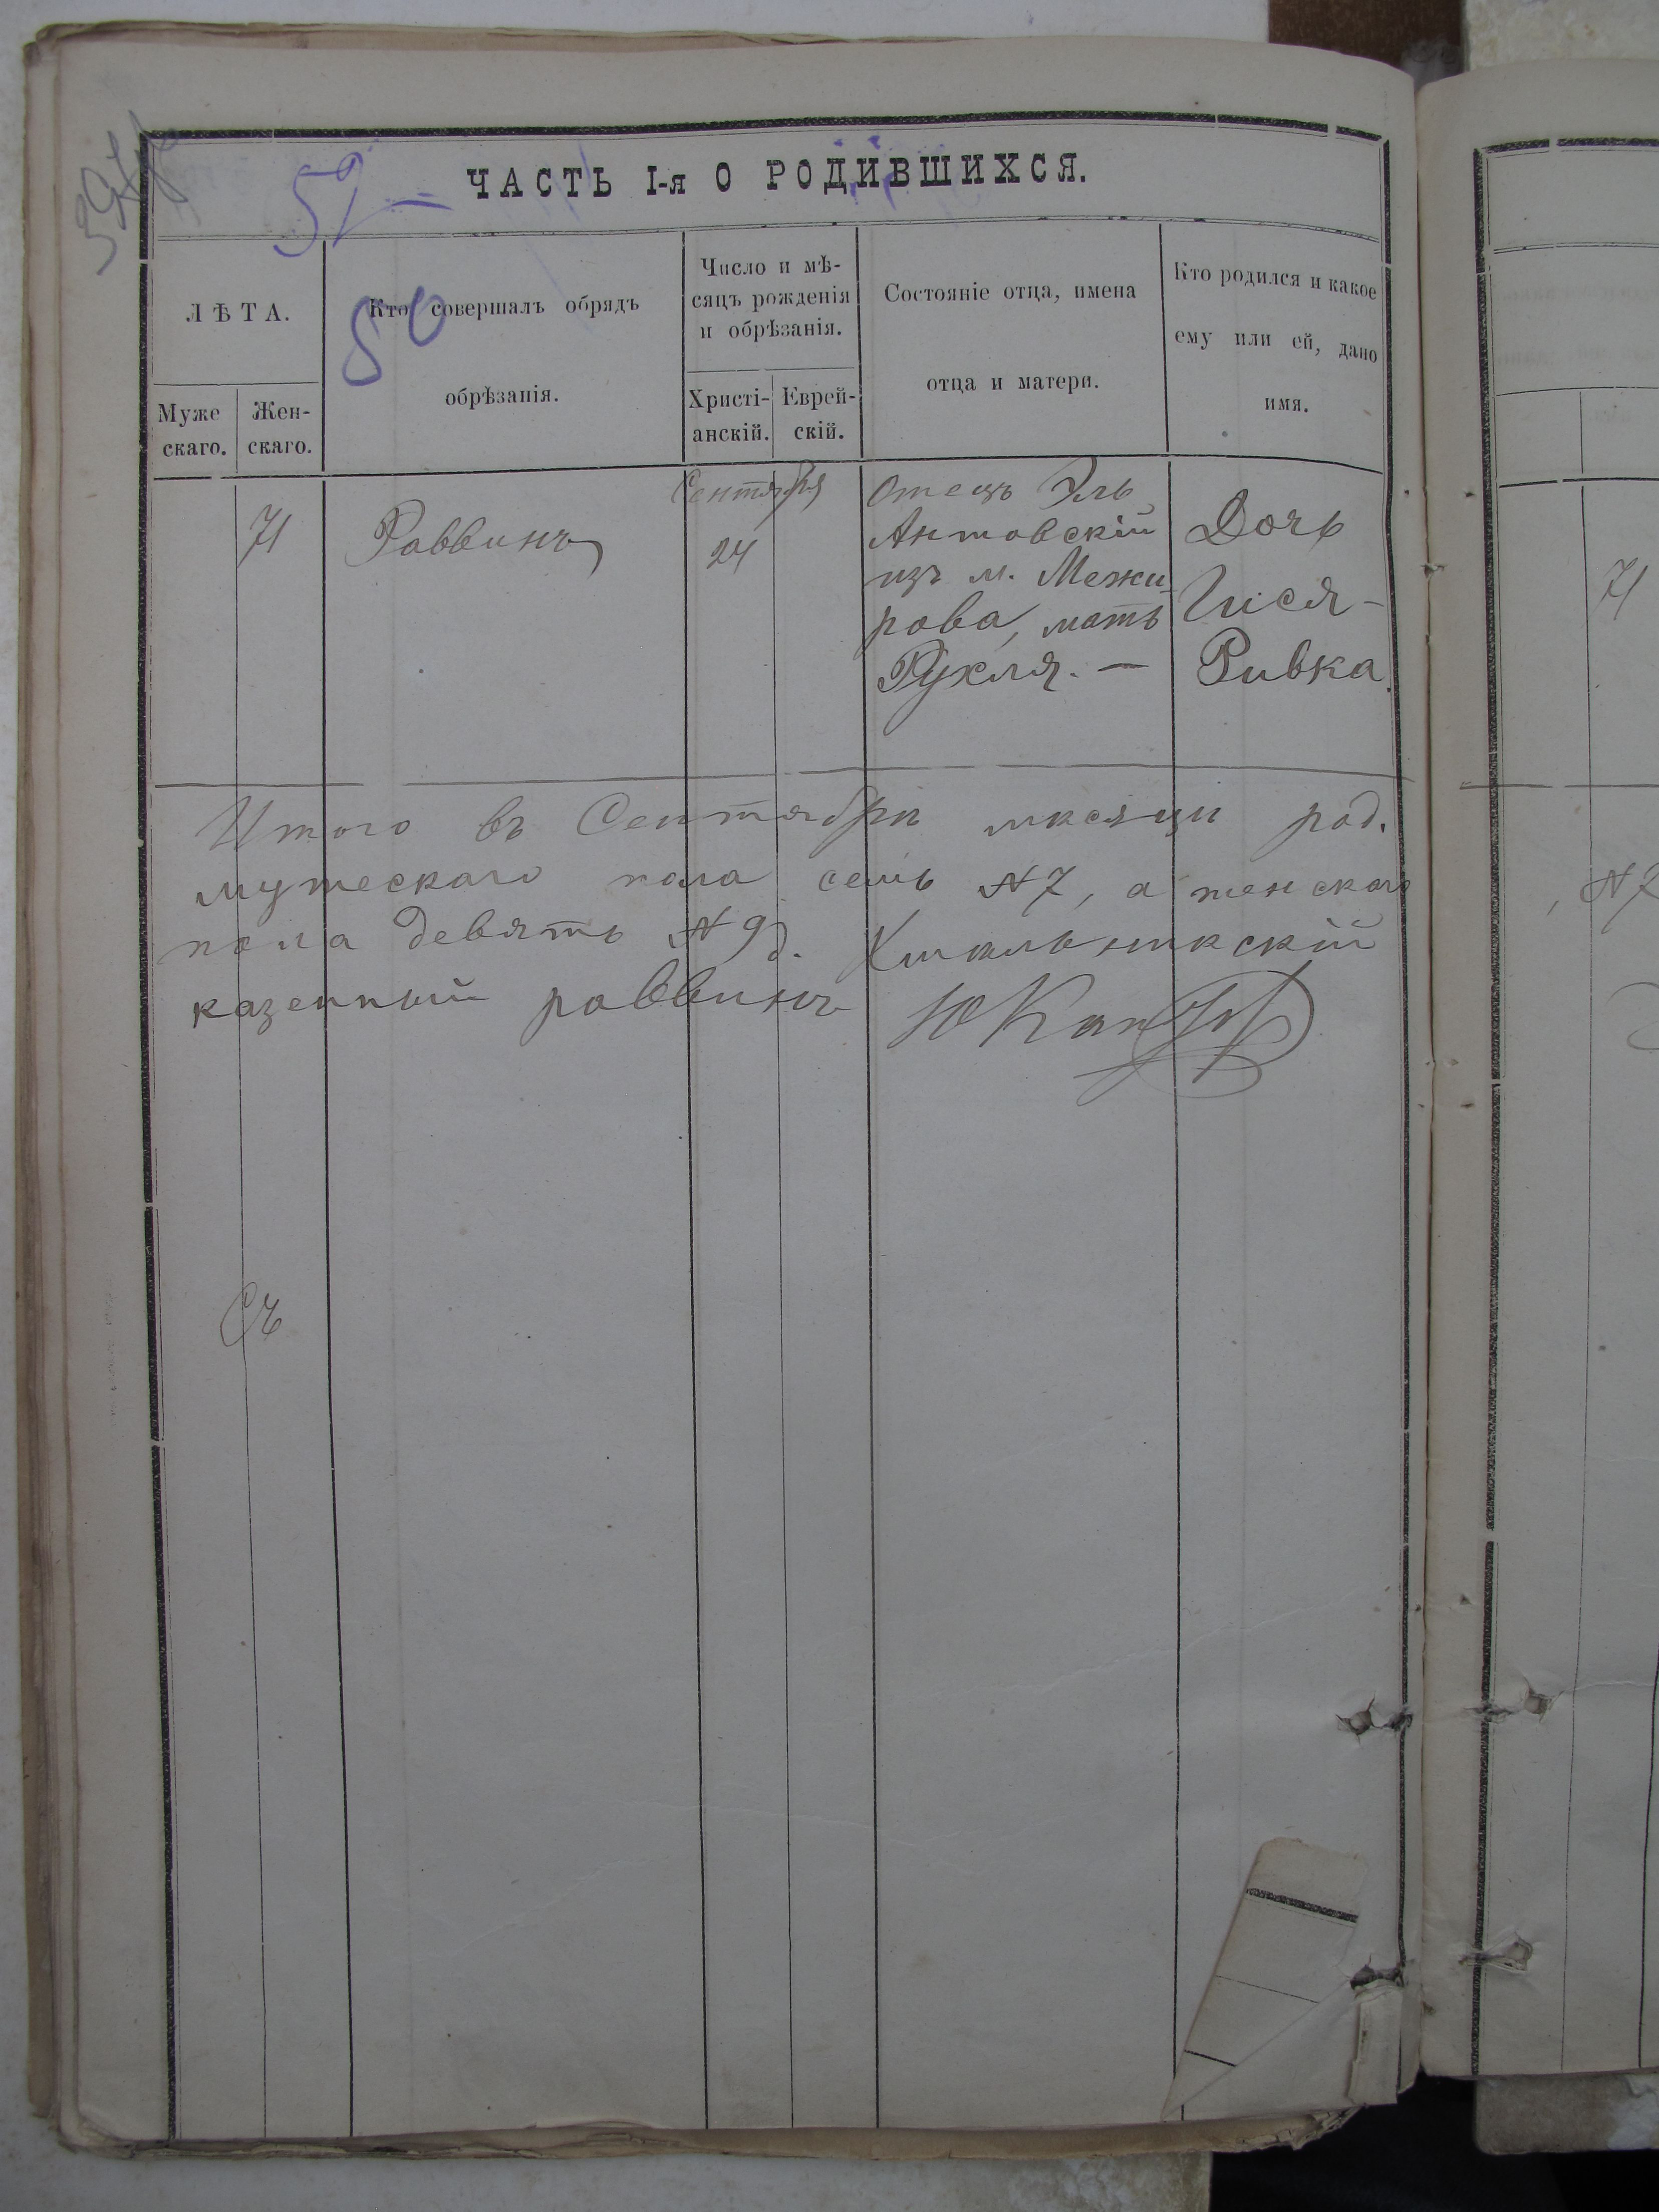 59
ЧАСТЬ I-я О РОДИВШИХСЯ.
80
ЛѢТА.
Муже
скаго.
Жен-
скаго.
Кто совершалъ обрядъ
обрѣзанія.
Число и мѣ-
сяцъ рожденія
и обрѣзанія.
Христі-
анскій.
Еврей-
скій.
Состояніе отца, имена
отца и матери.
Кто родился и какое
ему или ей, дано
имя.
71
Раввинъ
Сентября
24
Отецъ Эль
Антовскій
изъ м. Межи
рова, мать
Рухля. —
Дочь
Гися-
Ривка.
Итого въ Сентябрѣ мѣсяцѣ род.
мужескаго пола семь №7, а женскаго
пола девять №9д. Хмѣльникскій
казенный раввинъ
71
, №7